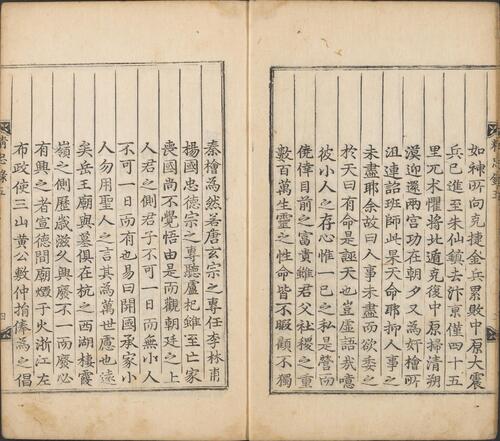 如神所向克捷金兵累敗中原大震
兵已進至朱仙鎮去汴京僅四十五
里兀术懼將北遁克復中原掃清朔
漠迎還兩宮功在朝夕又為奸檜所
沮連詔班師此果天命耶抑人事之
未盡耶余故曰人事未盡而欲委之
於天曰有命是誣天也豈虛語哉噫
彼小人之存心惟一己之私是營而
僥倖目前之富貴雖君父社稷之重
數百萬生靈之性命皆不暇顧不獨
秦檜為然若唐玄宗之專任李林甫
楊國忠德宗之專聽盧杞雖至亡家
喪國尚不覺悟由是而觀朝廷之上
人君之側君子不可一日而無小人
不可一日而有也易曰開國承家小
人勿用聖人之言其為萬世慮也遠
矣岳王廟與墓俱在杭之西湖棲霞
嶺之側歷歲滋久興廢不一而廢必
有興之者宣德間廟燬于火浙江左
布政使三山黃公敷仲捐俸為之倡
精忠錄五
四